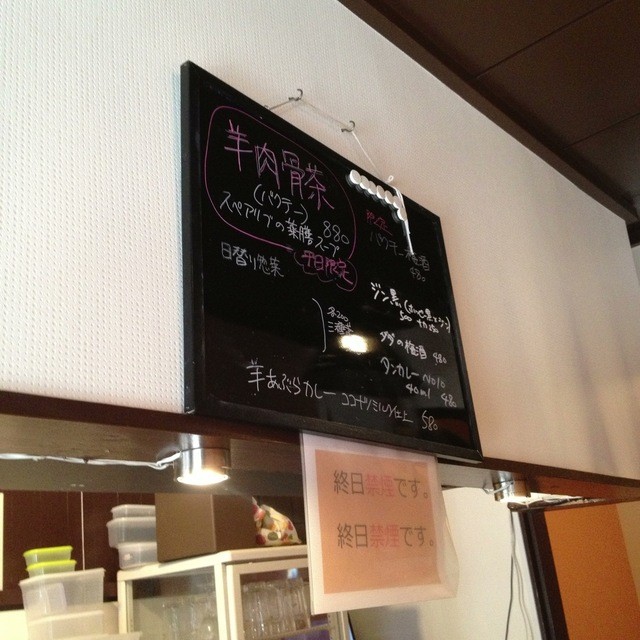 羊肉骨茶
(バクテー) 880
スペアリブの薬膳スープ
平日限定
日替り惣菜
各200
バクテー
680
ジン黒
500
梅酒 480
タンカレー No10
40ml
羊あぶらカレー ココナツミルク仕立 580
終日禁煙です。
終日禁煙です。